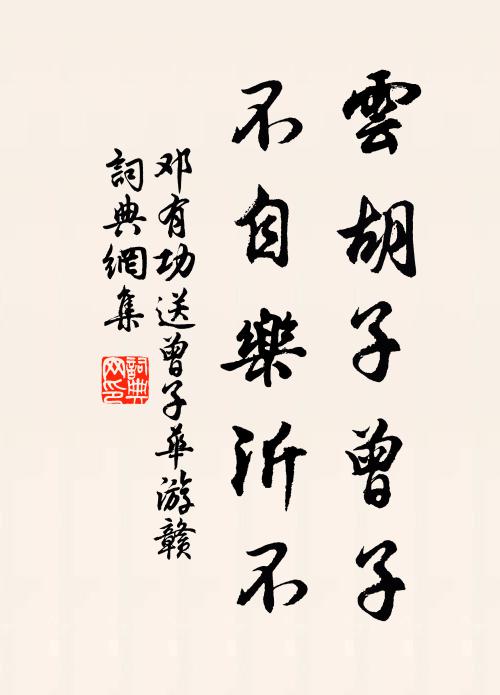 雲胡子曾子
不自樂沂不
邓有功送曾子華游贛
詞典網集
詞典網印